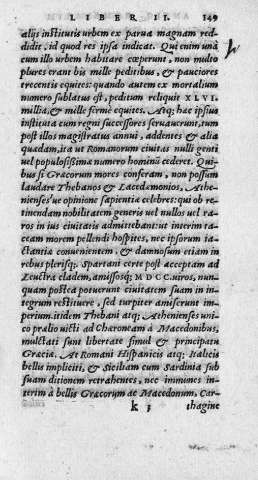 LIBER II. 149
alijs institutis urbem ex parua magnam red-
didit, id quod res ipsa indicat. Qui enim unà
cum illo urbem habitare cœperunt, non multo
plures erant bis mille peditibus, & pauciores
trecentis equites: quando autem ex mortalium
numero sublatus est, peditum reliquit XLVI.
millia, & mille fermè equites. Atq; hæc ipsius
instituta cum regni successores seruauerunt, tum
post illos magistratus annui, addentes & alia
quædam, ita ut Romanorum ciuitas nulli genti
uel populosissimæ numero hominũ cederet. Qui-
bus si Græcorum mores conferam, non possum
laudare Thebanos & Lacedæmonios, Athe-
nienses'ue opinione sapientia celebres: qui ob re-
tinendam nobilitatem generis uel nullos uel ra-
ros in ius ciuitatis admittebant: ut interim ta-
ceam morem pellendi hospites, nec ipsorum ia-
ctantiæ conuenientem, & damnosum etiam in
rebus plerisq;. Spartani certè post acceptam ad
Leuctra cladem, amissosq; MDCC. uiros, nun-
quam postea potuerunt ciuitatem suam in in-
tegrum restituere, sed turpiter amiserunt im-
perium. itidem Thebani atq; Athenienses uni-
co prælio uicti ad Chæroneam à Macedonibus,
mulctati sunt libertate simul & principatu
Græciæ. At Romani Hispanicis atq; Italicis
bellis impliciti, & Siciliam cum Sardinia sub
suam ditionem retrahentes, nec immunes in-
terim à bellis Græcorum ac Macedonum, Car-
k 3 thagine